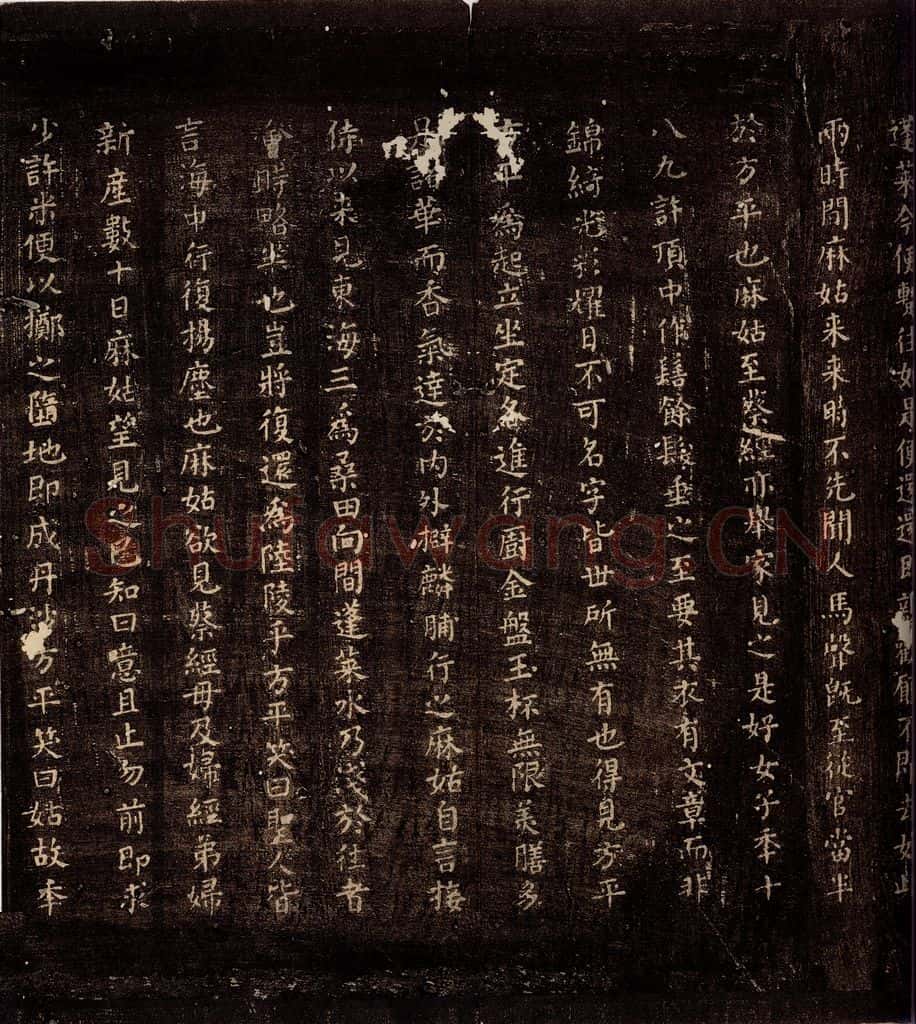 蓬萊今便蹔往如是便還還即親覲願不即去如此
兩時間麻姑来来時不先聞人馬聲既至從官當半
於方平也麻姑至蔡經亦舉家見之是好女子年十
八九許頂中作髻餘髮垂之至要其衣有文章而非
錦綺光彩耀日不可名字皆世所無有也得見方平
方平為起立坐定各進行廚金盤玉杯無限美膳多
是諸華而香氣達於内外擗麟脯行之麻姑自言接
侍以来見東海三為桑田向間蓬萊水乃淺於往者
會時略半也豈將復還為陸陵乎方平笑曰聖人皆
言海中行復揚塵也麻姑欲見蔡經母及婦經弟婦
新產數十日麻姑望見之已知曰噫且止勿前即求
少許米便以擲之墮地即成丹沙方平笑曰姑故年
Shufawang.CN